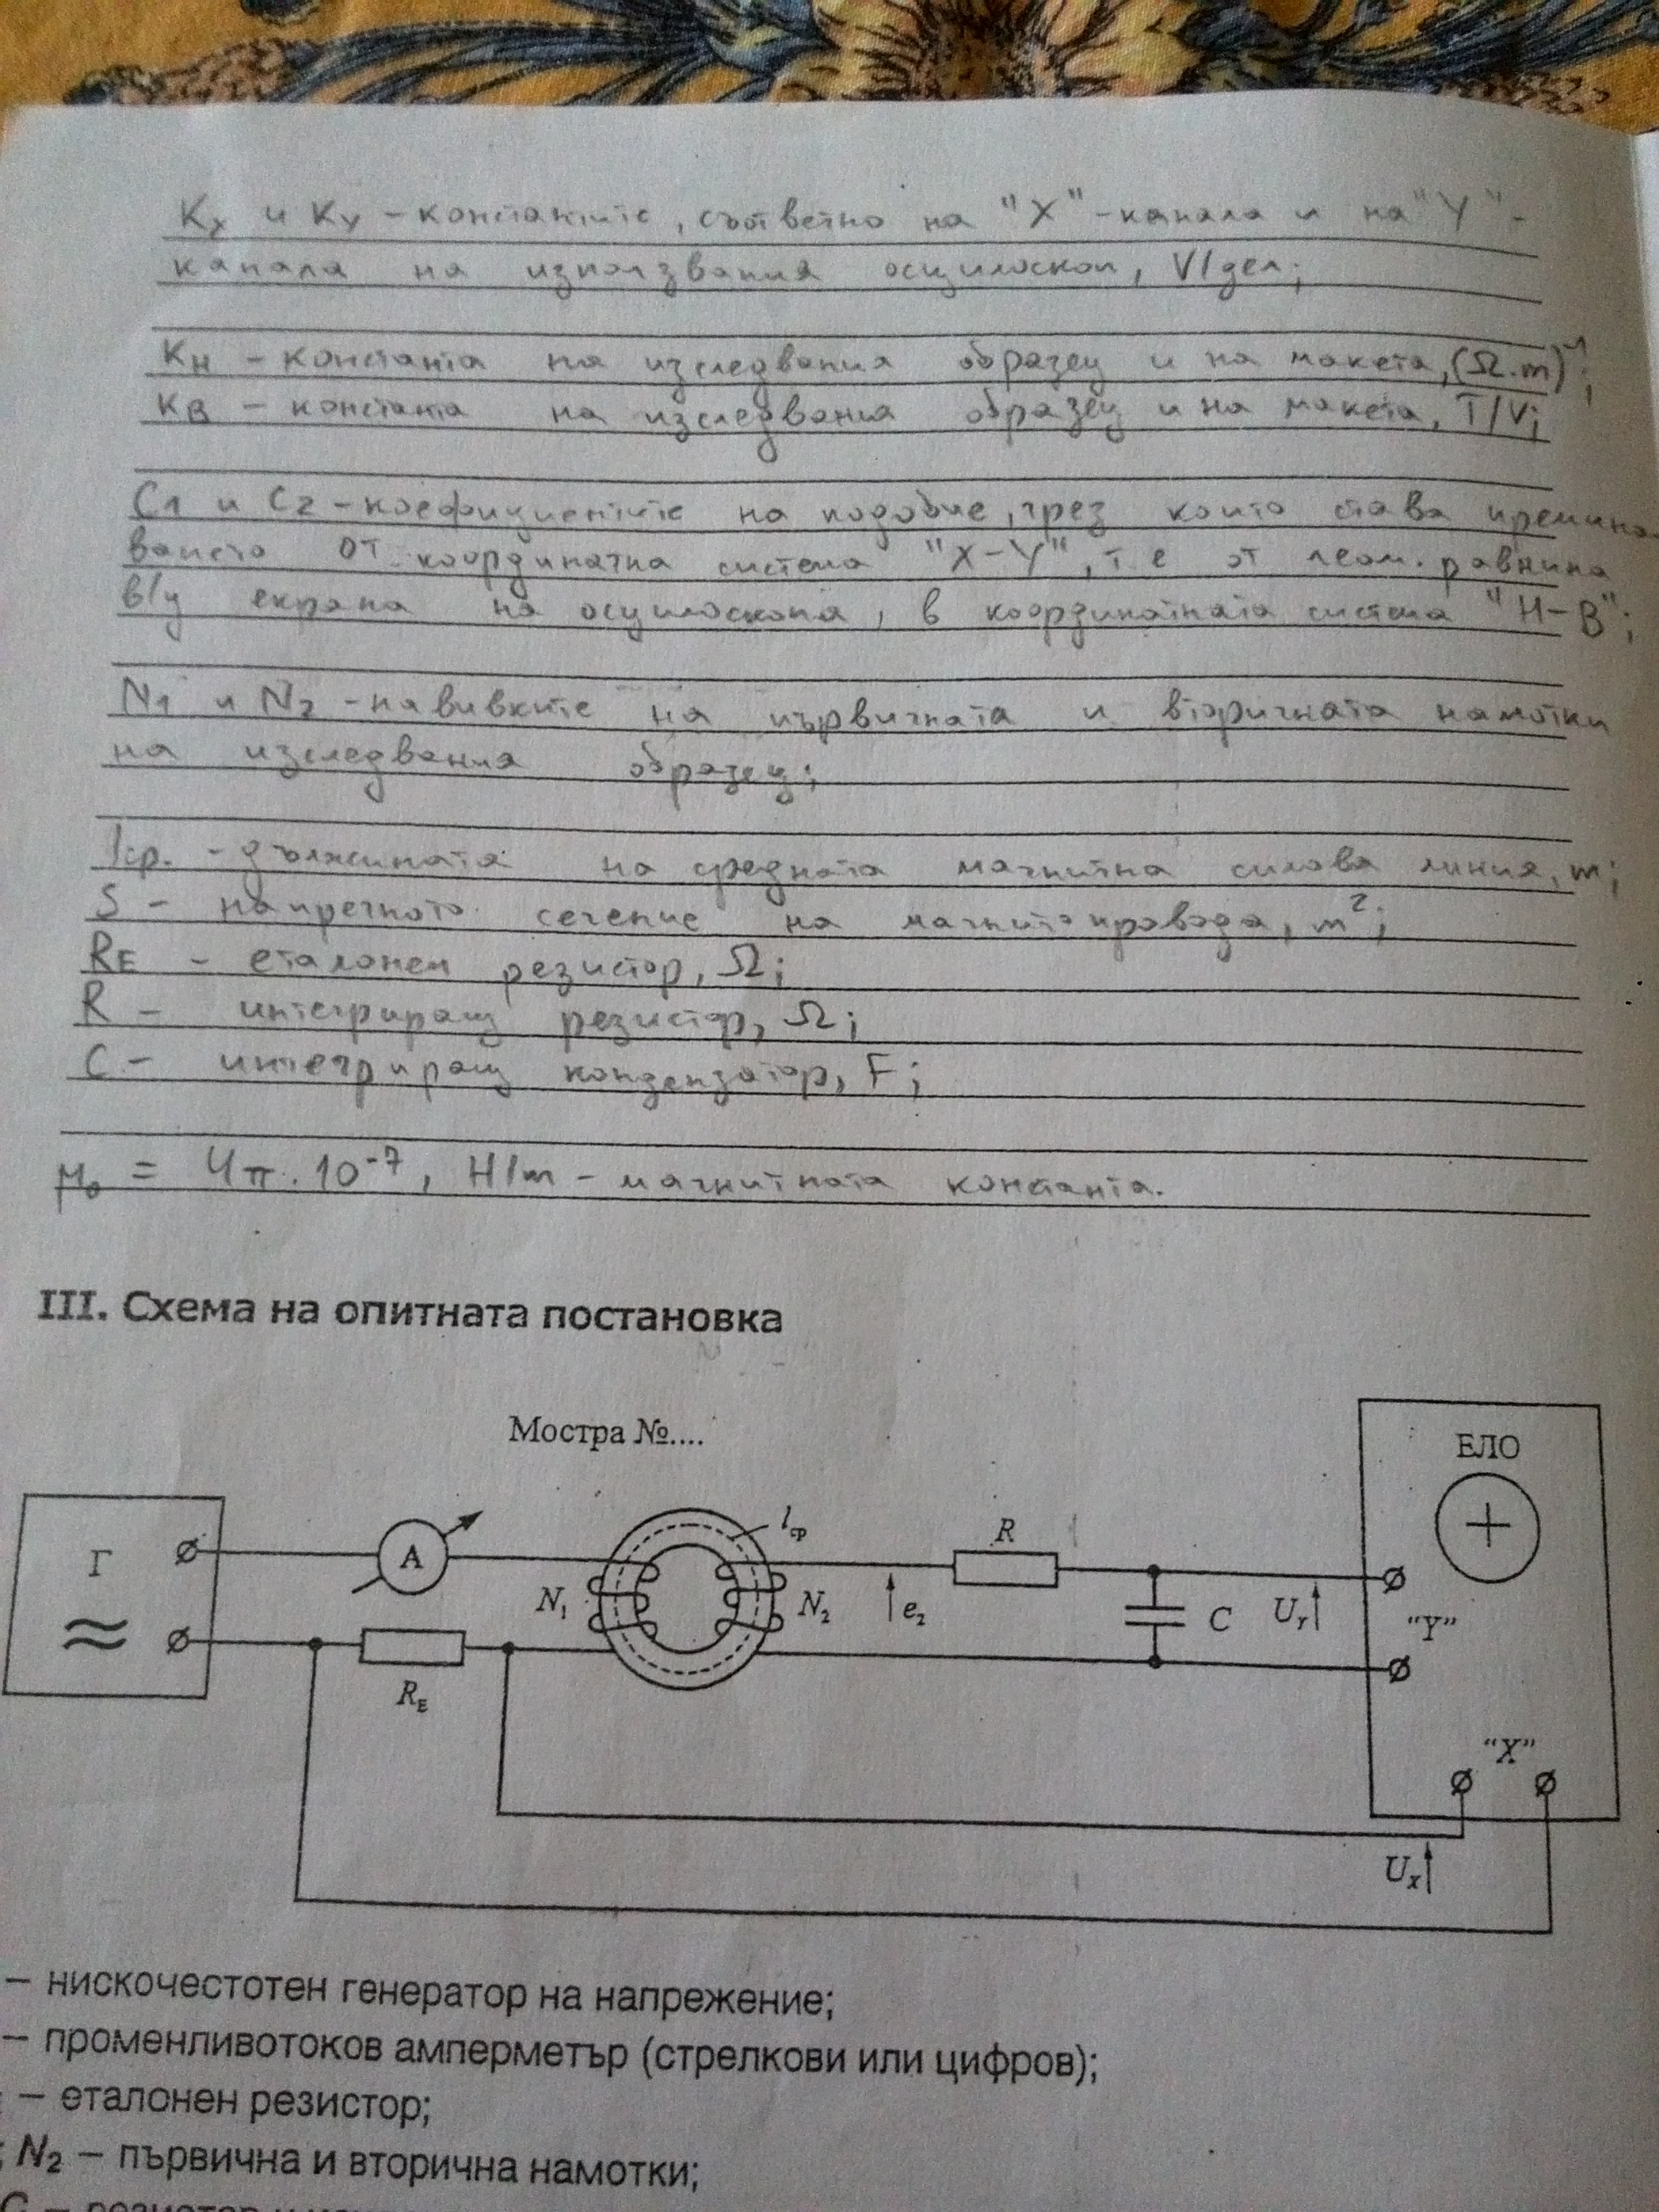 Kx и Ky - константите, съответно на "X"-канала и на "Y"-
канала на използвания осцилоскоп, V/дел;
KH - константа на изследвания образец и на макета, (Ω.m)⁻¹;
KB - константа на изследвания образец и на макета, T/V;
C1 и C2 - коефициентите на подобие, чрез които става премина-
ването от координатна система "X-Y", т.е от геом. равнина
в/у екрана на осцилоскопа, в координатната система "H-B";
N1 и N2 - навивките на първичната и вторичната намотки
на изследвания образец;
lср. - дължината на средната магнитна силова линия, m;
S - напречното сечение на магнитопровода, m²;
RE - еталонен резистор, Ω;
R - интегриращ резистор, Ω;
C - интегриращ кондензатор, F;
μ₀ = 4π.10⁻⁷, H/m - магнитната константа.
III. Схема на опитната постановка
Мостра №....
ЕЛО
Г
A
N₁
lср
N₂
e₂
R
C
UY
"Y"
RE
"X"
Ux
– нискочестотен генератор на напрежение;
– променливотоков амперметър (стрелкови или цифров);
– еталонен резистор;
; N₂ – първична и вторична намотки;